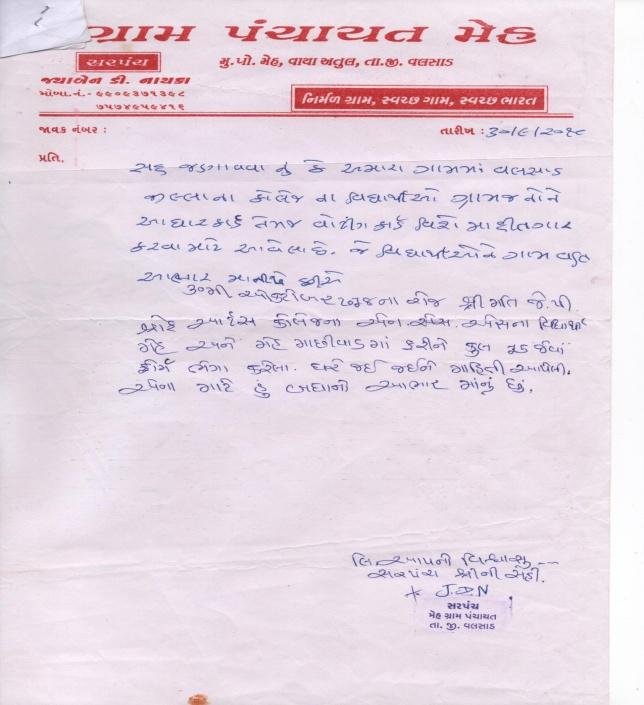 1
ગ્રામ પંચાયત મેહ
સરપંચ
મુ.પો. મેહ, વાયા અતુલ, તા.જી. વલસાડ
જયાબેન ડી. નાયકા
મોબા.નં.- ૯૯૦૯૩૭૧૩૯૮
૭૫૭૪૯૫૯૪૧૬
નિર્મળ ગ્રામ, સ્વચ્છ ગામ, સ્વચ્છ ભારત
જાવક નંબર :
તારીખ : ૩૦/૯/૨૦૧૮
પ્રતિ,
સહ જણાવવા નું કે અમારા ગામમાં વલસાડ
જીલ્લાના કોલેજ ના વિદ્યાર્થીઓ ગ્રામજનોને
આધારકાર્ડ તેમજ વોટીંગ કાર્ડ વિશે માહીતગાર
કરવા માટે આવેલા છે. જે વિદ્યાર્થીઓને ગામ વતી
આભાર માનીએ છીએ
૩૦મી ના રોજ શ્રીમતિ જે.પી.
શ્રોફ આર્ટસ કોલેજના એન એસ. એસના વિદ્યાર્થી
મેહ અને મેહ માછીવાડમાં ફરીને કુલ જેવાં
ફોર્મ ભેગા કરેલા. ઘરે જઈ જઈને માહિતી આપેલી.
એના માટે હું બધાનો આભાર માંનું છું.
લિ આપની વિશ્વાસુ
સરપંચ શ્રીની સહી.
J.D.N
સરપંચ
મેહ ગ્રામ પંચાયત
તા. જી. વલસાડ